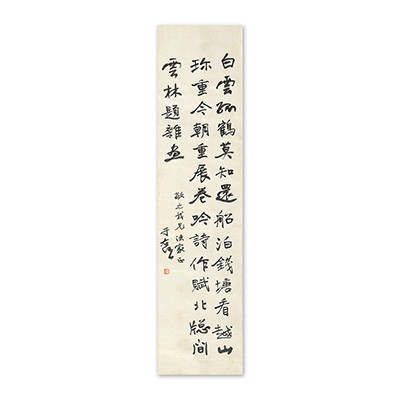 白雲孤鶴莫知還船泊錢塘看越山
珍重今朝重展卷吟詩作賦北窗間
雲林題雜畫
敬之我兄法家正